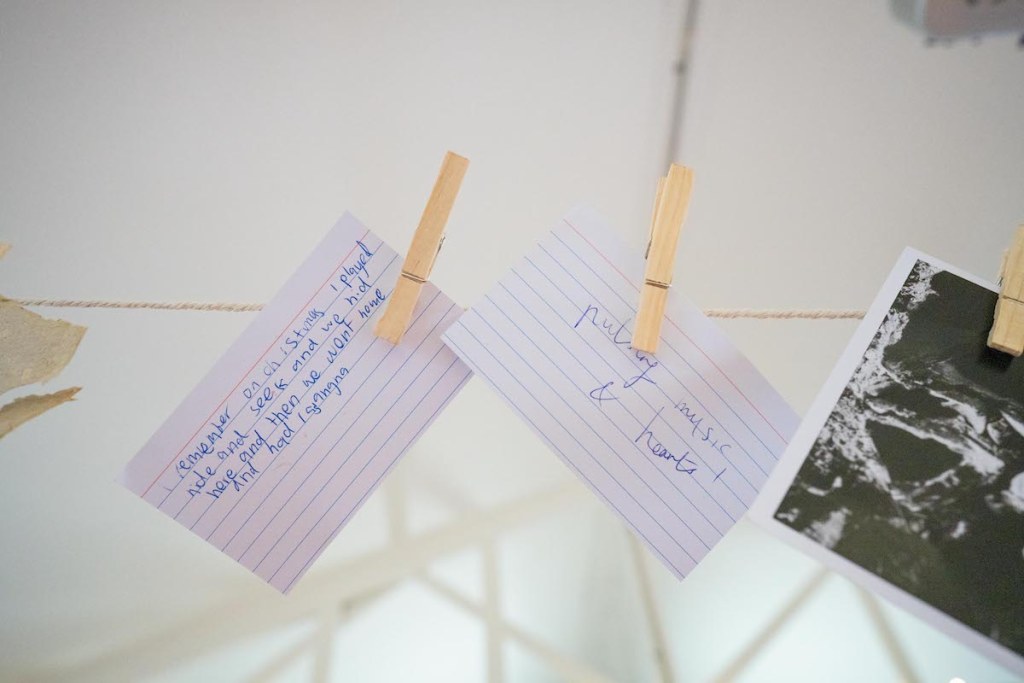 I remember on christmas I played
hide and seek and we hid
here and then we went home
and had lasangna
putting
music
& hearts!